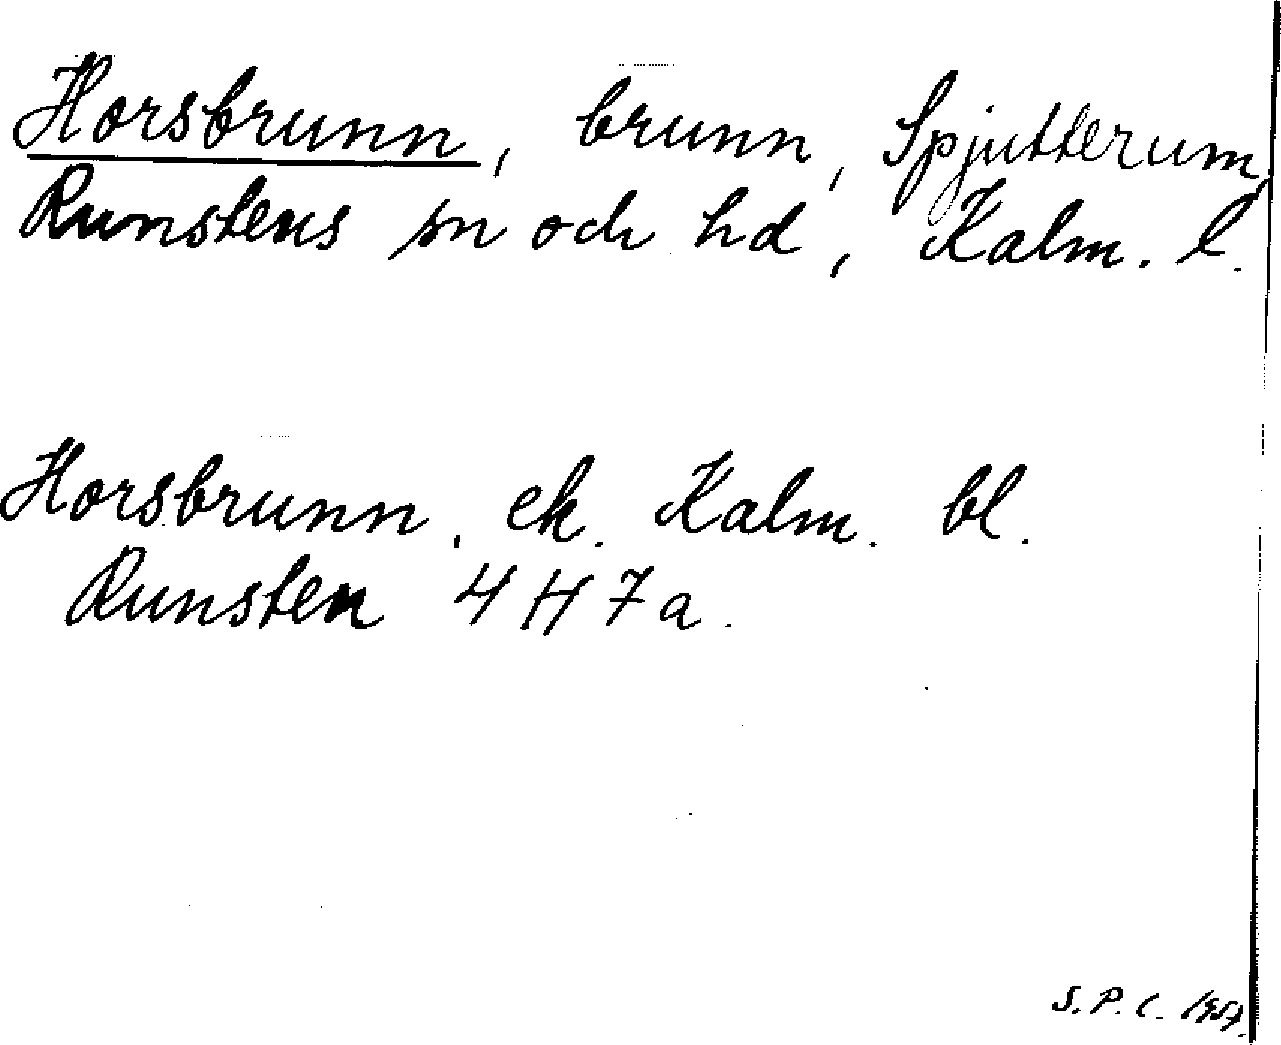 Horsbrunn, brunn, Spjutterum,
Runstens sn och hd, Kalm. l.
Horsbrunn, ek. Kalm. bl.
Runsten 4 H 7 a.
S. P. C.